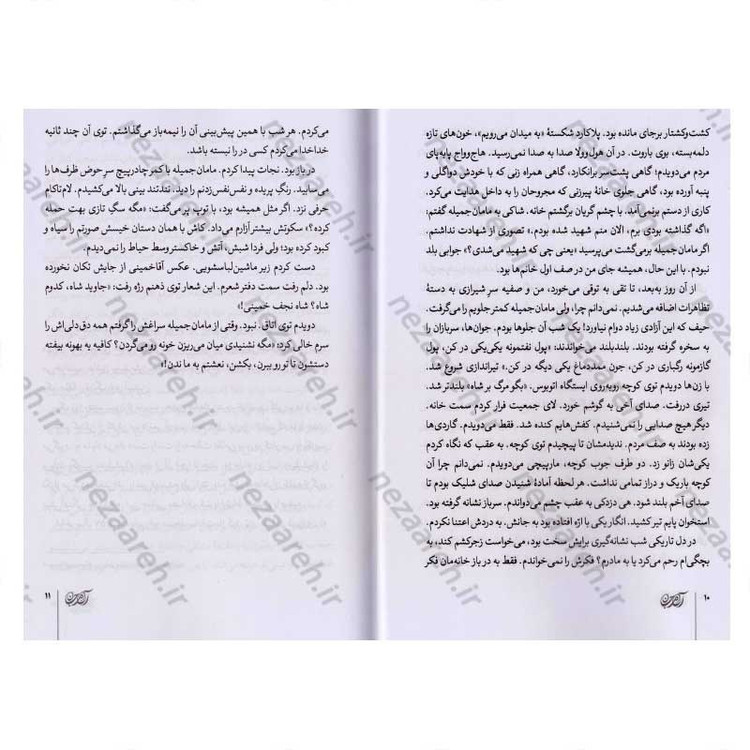 کشت‌وکشتار برجای مانده بود. پلاکارد شکستهٔ «به میدان می‌رویم»، خون‌های تازه
دلمه‌بسته، بوی باروت. در آن هول‌وولا صدا به صدا نمی‌رسید. هاج‌وواج پابه‌پای
مردم می‌دویدم؛ گاهی پشت‌سر برانکارد، گاهی همراه زنی که با خودش دواگلی و
پنبه آورده بود، گاهی جلوی خانهٔ پیرزنی که مجروحان را به داخل هدایت می‌کرد.
کاری از دستم برنمی‌آمد. با چشم گریان برگشتم خانه. شاکی به مامان‌جمیله گفتم:
«اگه گذاشته بودی برم، الان منم شهید شده بودم.» تصوری از شهادت نداشتم.
اگر مامان‌جمیله برمی‌گشت می‌پرسید «یعنی چی که شهید می‌شدی؟» جوابی بلد
نبودم. با این حال، همیشه جای من در صف اول خانم‌ها بود.
از آن روز به‌بعد، تا تقی به توقی می‌خورد، من و صفیه سرِ شیرازی به دستهٔ
تظاهرات اضافه می‌شدیم. نمی‌دانم چرا، ولی مامان‌جمیله کمتر جلویم را می‌گرفت.
حیف که این آزادی زیاد دوام نیاورد! یک شب آن جلوها بودم. جوان‌ها، سربازان را
به سخره گرفته بودند. بلندبلند می‌خواندند: «پول نفتمونه یکی‌یکی در کن، پول
گازمونه رگباری در کن، جون ممددماغ یکی دیگه در کن.» تیراندازی شروع شد.
با زن‌ها دویدم توی کوچه روبه‌روی ایستگاه اتوبوس. «بگو مرگ بر شاه» بلندتر شد.
تیری دررفت. صدای آخی به گوشم خورد. لای جمعیت فرار کردم سمت خانه.
دیگر هیچ صدایی را نمی‌شنیدم. کفش‌هایم کنده شد. فقط می‌دویدم. گاردی‌ها
زده بودند به صف مردم. ندیدمشان تا پیچیدم توی کوچه. به عقب که نگاه کردم
یکی‌شان زانو زد. دو طرف جوب کوچه، مارپیچی می‌دویدم. نمی‌دانم چرا آن
کوچه باریک و دراز تمامی نداشت. هر لحظه آمادهٔ شنیدن صدای شلیک بودم تا
صدای آخم بلند شود. هی دزدکی به عقب چشم می‌دواندم. سرباز نشانه گرفته بود.
استخوان پایم تیر کشید. انگار یکی با اره افتاده بود به جانش. به دردش اعتنا نکردم.
در دل تاریکی شب نشانه‌گیری برایش سخت بود، می‌خواست زجرکشم کند، به
بچگی‌ام رحم می‌کرد یا به مادرم؟ فکرش را نمی‌خواندم. فقط به در باز خانه‌مان فکر
۱۰
می‌کردم. هر شب با همین پیش‌بینی آن را نیمه‌باز می‌گذاشتم. توی آن چند ثانیه
خداخدا می‌کردم کسی در را نبسته باشد.
در باز بود. نجات پیدا کردم. مامان‌جمیله با کمر چادرپیچ سرِ حوض ظرف‌ها را
می‌سابید. رنگِ پریده و نفس‌نفس‌زدنم را دید. تندتند بینی بالا می‌کشیدم. لام‌تاکام
حرفی نزد. اگر مثل همیشه بود، با توپ پر می‌گفت: «مگه سگِ تازی بهت حمله
کرده؟» سکوتش بیشتر آزارم می‌داد. کاش با همان دستان خیسش صورتم را سیاه و
کبود کرده بود؛ ولی فردا شبش، آتش و خاکستر وسط حیاط را نمی‌دیدم.
دست کردم زیر ماشین‌لباسشویی. عکس آقاخمینی از جایش تکان نخورده
بود. دلم رفت سمت دفتر شعرم. این شعار توی ذهنم رژه رفت: «جاوید شاه، کدوم
شاه؟ شاه نجف خمینی!»
دویدم توی اتاق. نبود. وقتی از مامان‌جمیله سراغش را گرفتم همه دق‌دلی‌اش را
سرم خالی کرد: «مگه نشنیدی میان می‌ریزن خونه رو می‌گردن؟ کافیه یه بهونه بیفته
دستشون تا تو رو ببرن، بکشن، نعشتم به ما ندن!»
۱۱
nezaareh.ir